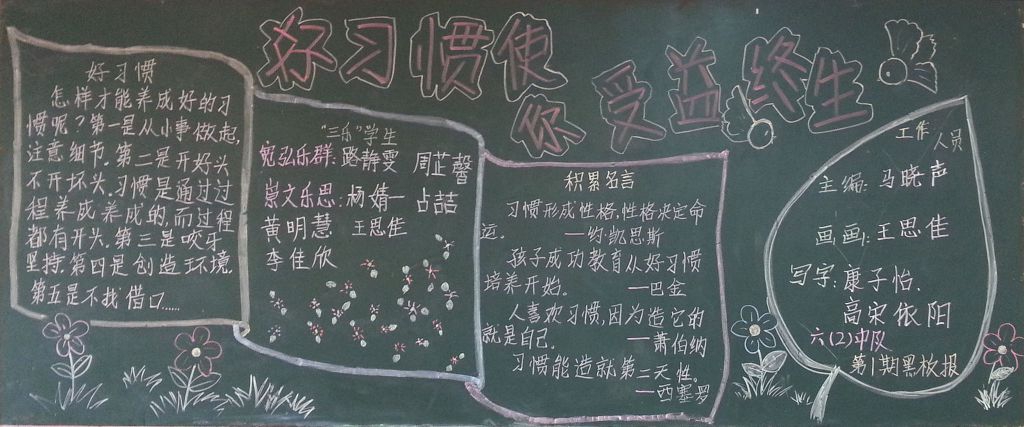 好习惯使
你受益终生
好习惯
怎样才能养成好的习
惯呢？第一是从小事做起，
注意细节。第二是开好头
不开坏头。习惯是通过过
程养成养成的，而过程
都有开头。第三是咬牙
坚持。第四是创造环境。
第五是不找借口……
“三乐”学生
宽弘乐群：路静雯 周芷馨
崇文乐思：杨婧一 占喆
黄明慧 王思佳
李佳欣
积累名言
习惯形成性格，性格决定命
运。 —约·凯恩斯
孩子成功教育从好习惯
培养开始。 —巴金
人喜欢习惯，因为造它的
就是自己。 —萧伯纳
习惯能造就第二天性。
—西塞罗
工作
人员
主编：马晓声
画画：王思佳
写字：康子怡.
高宋依阳
六(2)中队
第1期黑板报